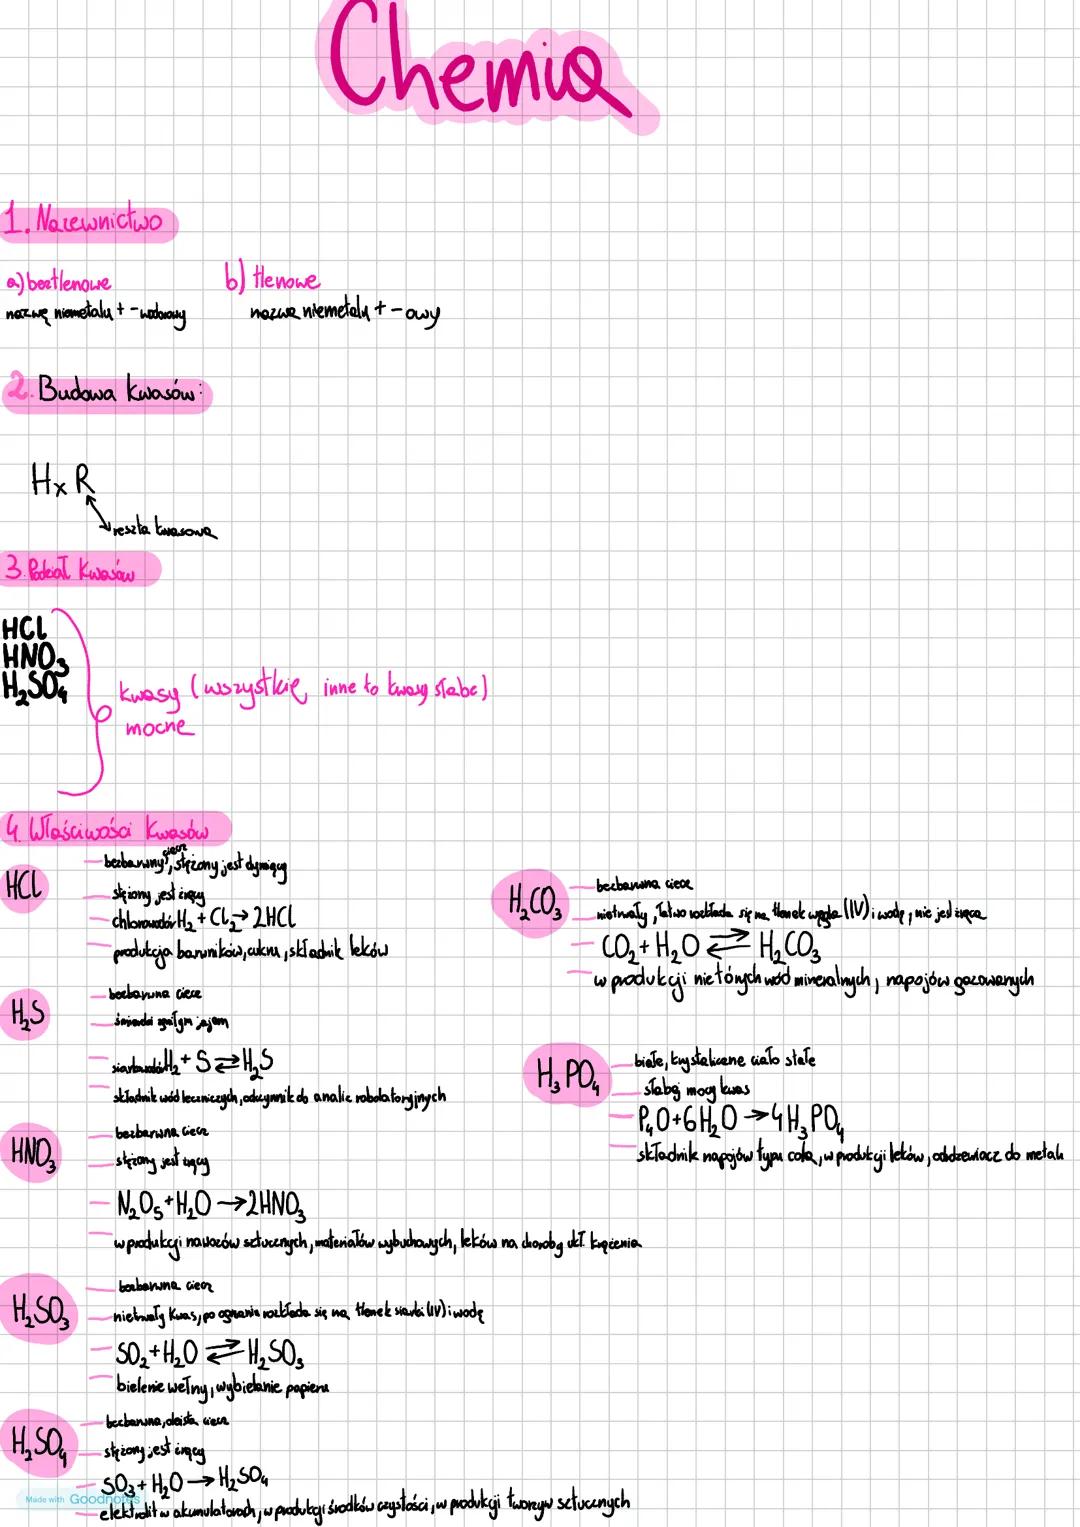 Chemia
1. Nazewnictwo
a) beztlenowe
nazwę niemetalu + -wodorowy
b) tlenowe
nazwa niemetalu + -owy
2. Budowa kwasów:
HxR
reszta kwasowa
3. Podział kwasów
HCl
HNO₃
H₂SO₄
kwasy (wszystkie inne to kwasy słabe)
mocne
4. Właściwości kwasów
HCl
- bezbarwny ciecz, stężony jest dymiący
- stężony jest żrący
- chlorowodór H₂ + Cl₂ → 2HCl
- produkcja barwników, cukru, składnik leków
H₂S
- bezbarwna ciecz
- śmierdzi zgniłym jajem
- siarkowodór H₂ + S ⇄ H₂S
- składnik wód leczniczych, odczynnik do analiz robolatoryjnych
HNO₃
- bezbarwna ciecz
- stężony jest żrący
- N₂O₅ + H₂O → 2HNO₃
- w produkcji nawozów sztucznych, materiałów wybuchowych, leków na choroby ukł. krążenia
H₂SO₃
- bezbarwna ciecz
- nietrwały kwas, po ogrzaniu rozkłada się na tlenek siarki (IV) i wodę
- SO₂ + H₂O ⇄ H₂SO₃
- bielenie wełny, wybielanie papieru
H₂SO₄
- bezbarwna, oleista ciecz
- stężony jest żrący
- SO₃ + H₂O → H₂SO₄
- elektrolit w akumulatorach, w produkcji środków czystości, w produkcji tworzyw sztucznych
H₂CO₃
- bezbarwna ciecz
- nietrwały, łatwo rozkłada się na tlenek węgla (IV) i wodę, nie jest żrąca
- CO₂ + H₂O ⇄ H₂CO₃
- w produkcji nietórych wód mineralnych, napojów gazowanych
H₃PO₄
- białe, krystaliczne ciało stałe
- słabej mocy kwas
- P₄O + 6H₂O → 4H₃PO₄
- składnik napojów typu cola, w produkcji leków, odrdzewiacz do metali
Made with Goodnotes